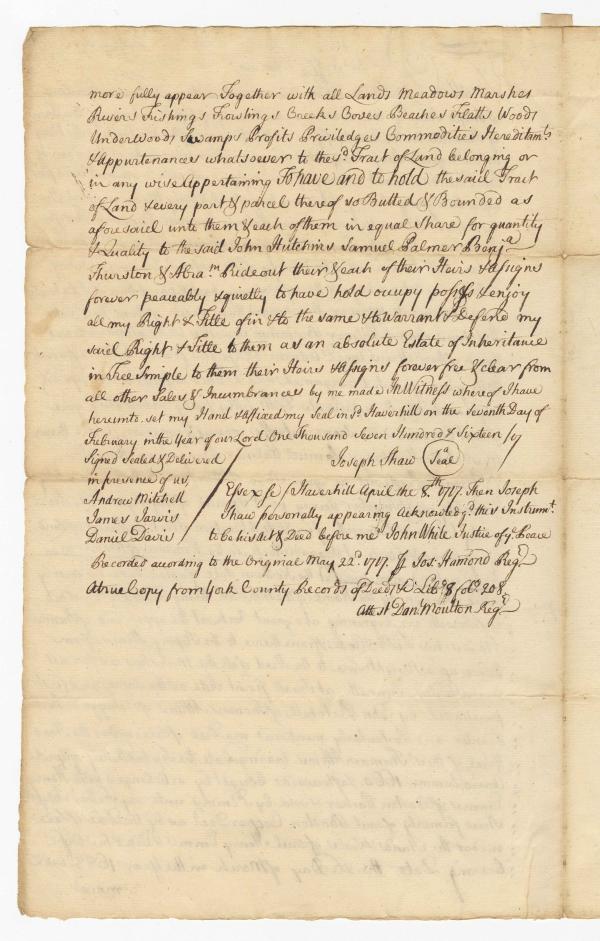 more fully appear Together with all Lands Meadows Marshes
Rivers Fishings Fowlings Creeks Coves Beaches Flatts Woods
Underwoods Swamps Profits Priviledges Commodities Hereditamts
& Appurtenances whatsoever to the sd. Tract of Land belonging or
in any wise Appertaining To have and to hold the said Tract
of Land & every part & parcel thereof so Butted & Bounded as
aforesaid unto them & each of them in equal Share for quantity
& Quality to the said John Hutchins Samuel Palmer Benja
Thurston & Abram Rideout their & each of their Heirs & assigns
forever peaceably & quietly to have hold occupy possess & enjoy
all my Right & Title of in & to the same & to Warrant & Defend my
said Right & Title to them as an absolute Estate of Inheritance
in Fee Simple to them their Heirs & assigns forever free & clear from
all other Sales & Incumbrances by me made In Witness whereof I have
hereunto set my Hand & affixed my Seal in sd Haverhill on the Seventh Day of
February in the Year of our Lord One Thousand Seven Hundred & Sixteen /17
Signed Sealed & Delivered
in presence of us,
Andrew Mitchell
James Jarvis
Daniel Davis
Joseph Shaw Seal
Essex sc Haverhill April the 8th 1717. Then Joseph
Shaw personally appearing Acknowledgd this Instrumt.
to be his Act & Deed before me John White Justice of ye. Peace
Recorded according to the Original May 22d. 1717. Jos: Hamond Regr
A true Copy from York County Records of Deeds &c Libo. 8 Folo. 208
Attest Danl. Moulton Regr